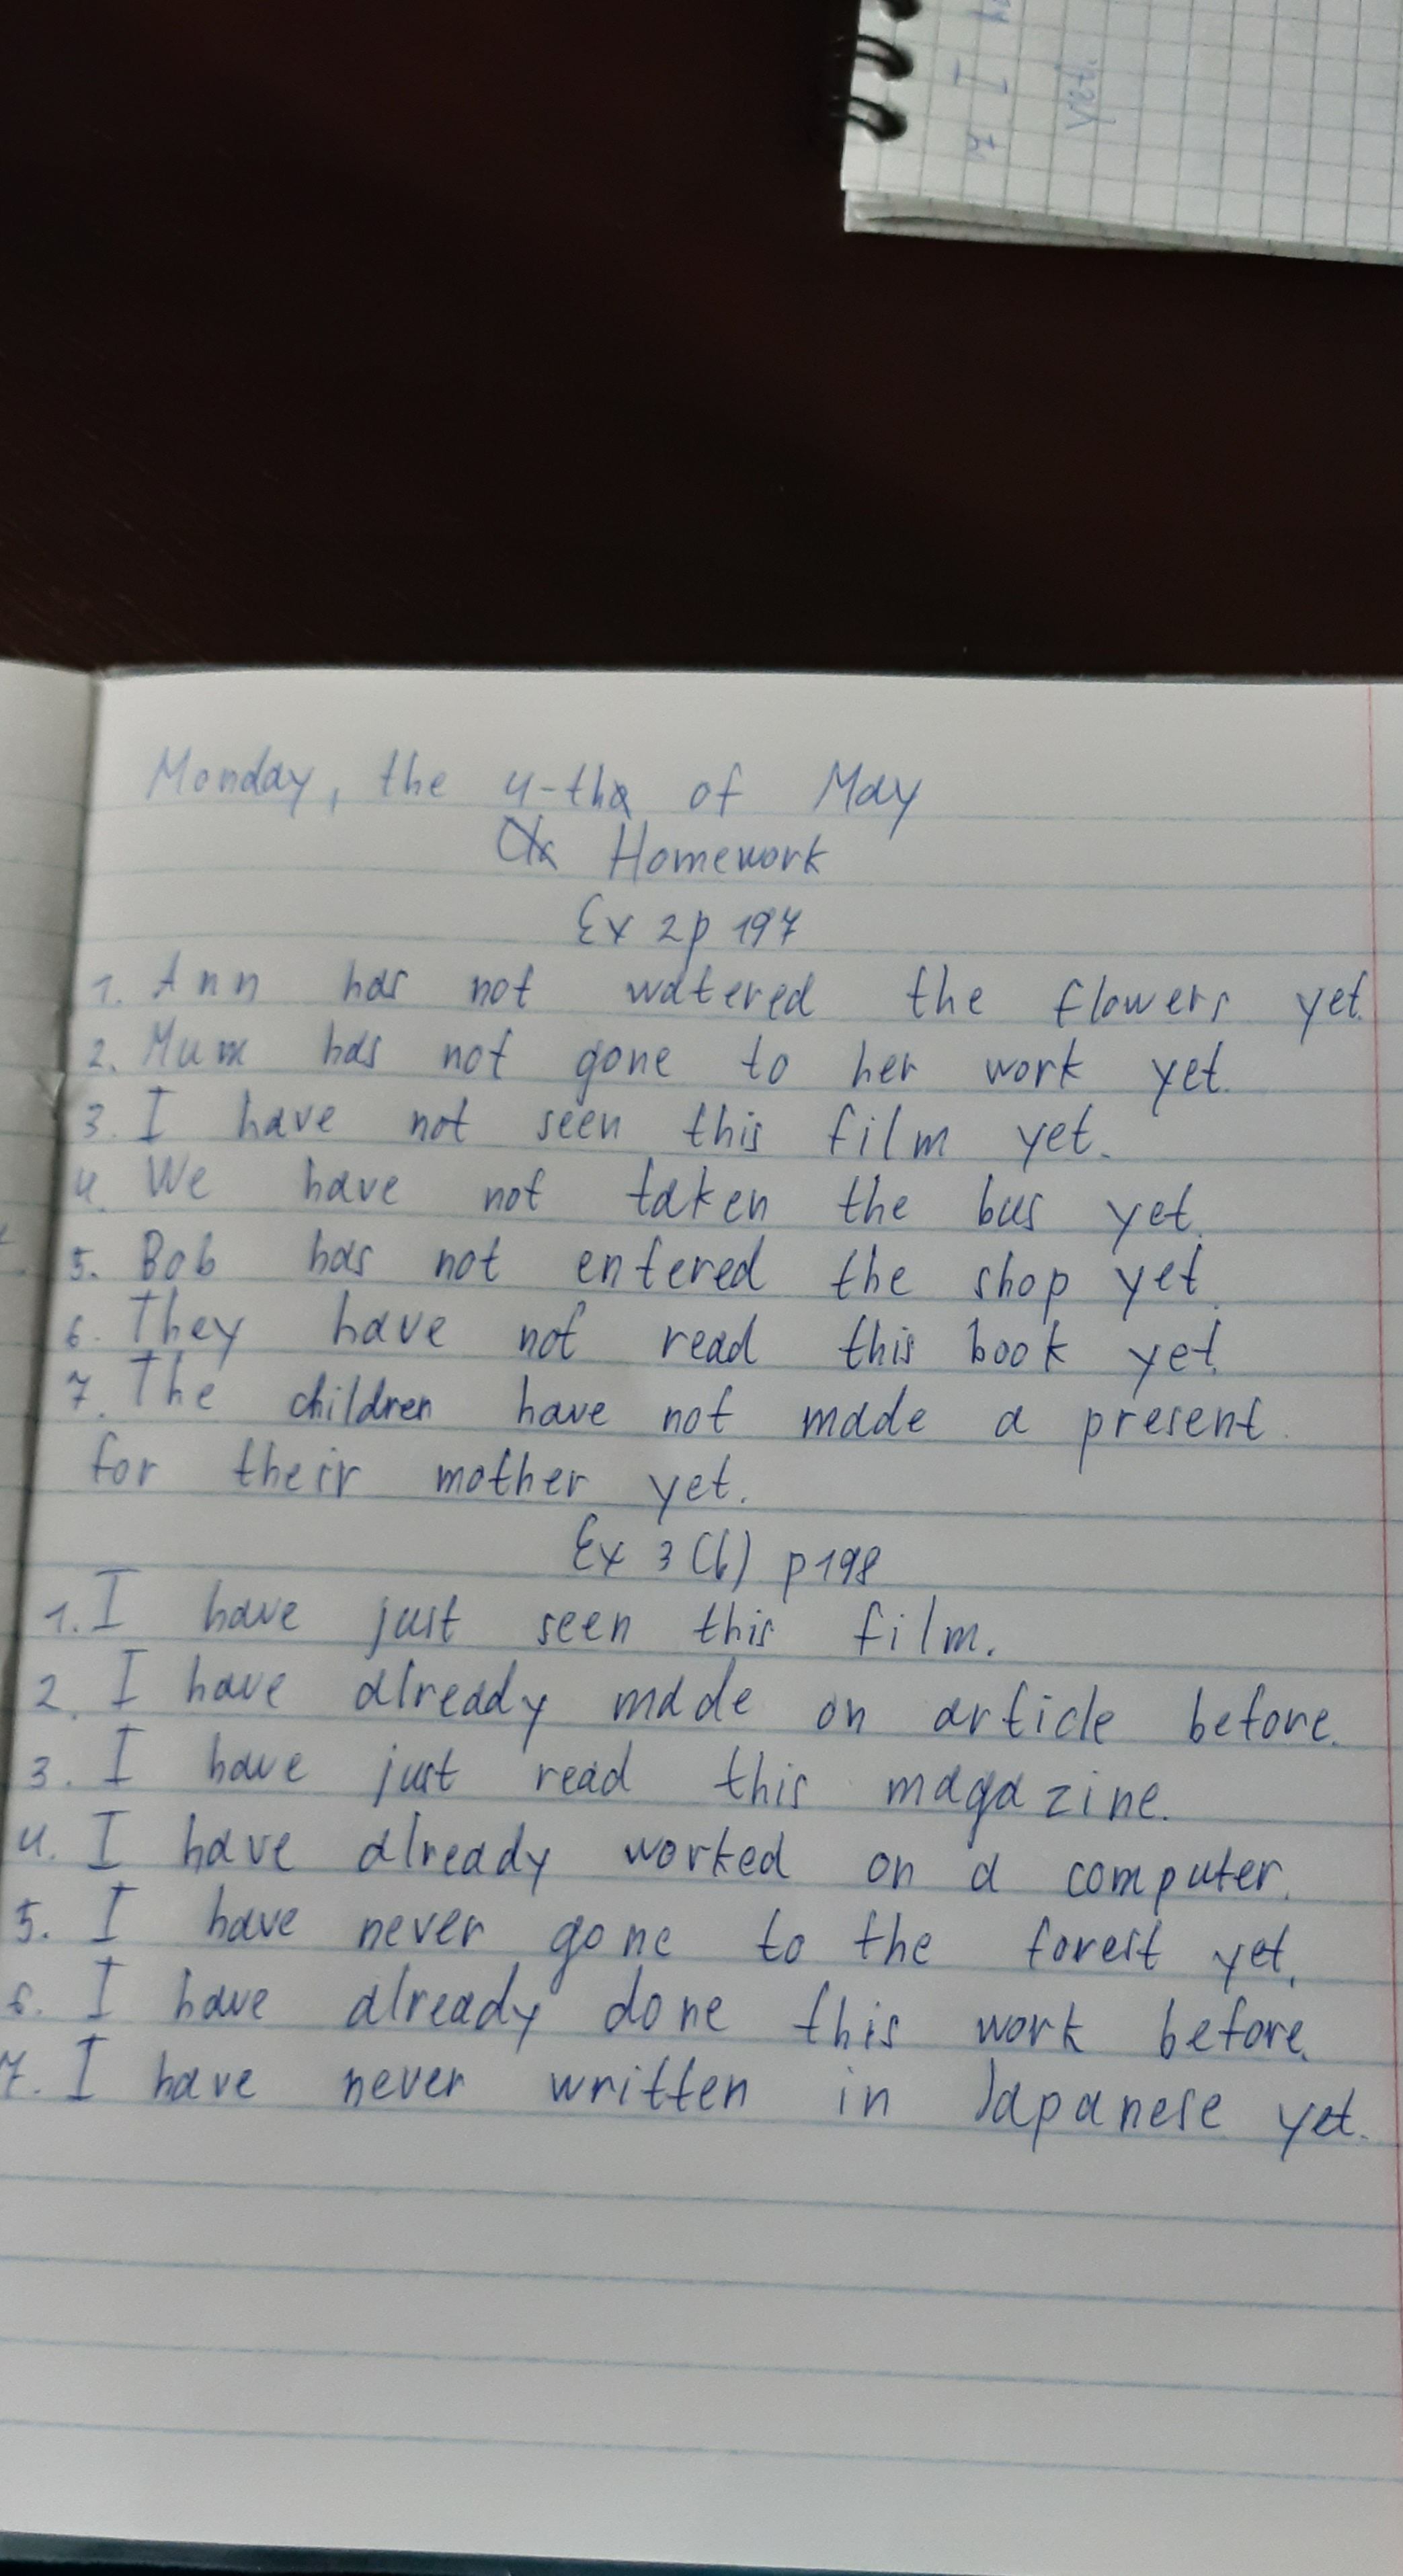 7 I
yet.
Monday, the 4-th of May
Homework
Ex 2p 197
1. Ann has not watered the flowers yet.
2. Mum has not gone to her work yet.
3. I have not seen this film yet.
4. We have not taken the bus yet.
5. Bob has not entered the shop yet.
6. They have not read this book yet.
7. The children have not made a present
for their mother yet.
Ex 3 (b) p 198
1. I have just seen this film.
2. I have already made on article before.
3. I have just read this magazine.
4. I have already worked on a computer.
5. I have never gone to the forest yet.
6. I have already done this work before.
7. I have never written in Japanese yet.